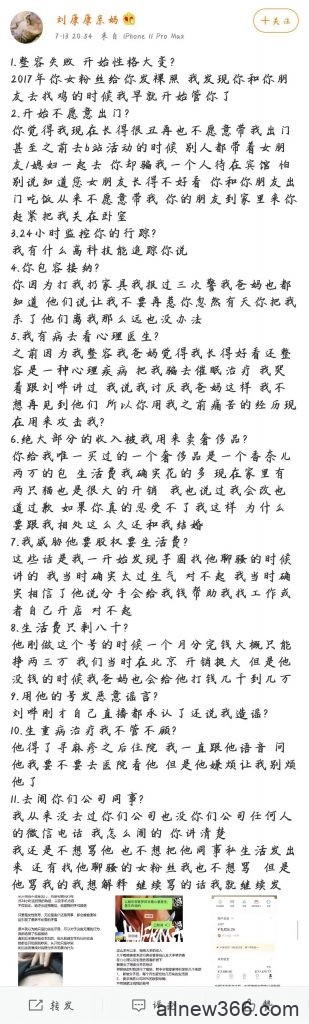 刘康康亲妈
7-13 20:54 来自 iPhone 11 Pro Max
+关注
1.整容失败 开始性格大变?
2017年你女粉丝给你发裸照 我发现你和你朋
友去找鸡的时候我早就开始管你了
2.开始不愿意出门?
你觉得我现在长得很丑再也不愿意带我出门
甚至之前去b站活动的时候 别人都带着女朋
友/媳妇一起去 你却骗我一个人待在宾馆 怕
别说知道您女朋友长得不好看 你和你朋友出
门吃饭从来不愿意带我 你的朋友到家里来你
赶紧把我关在卧室
3.24小时监控你的行踪?
我有什么高科技能追踪你说
4.你包容接纳?
你因为打我扔家具我报过三次警我爸妈也都
知道 他们说让我不要再惹你忽然有天你把我
杀了他们离我那么远也没办法
5.我有病去看心理医生?
之前因为我整容我爸妈觉得我长得好看还整
容是一种心理疾病 把我骗去催眠治疗 我哭
着跟刘哗讲过 我说我讨厌我爸妈这样 我不
想再见到他们 所以你用我之前痛苦的经历现
在用来攻击我?
6.绝大部分的收入被我用来卖奢侈品?
你给我唯一买过的一个奢侈品是一个香奈儿
两万的包 生活费我确实花的多 现在家里有
两只猫也是很大的开销 我也说过我会改也
道过歉 如果你真的忍受不了我这样 为什么
要跟我相处这么久还和我结婚
7.我威胁他要股权要生活费?
这些话是我一开始发现手圆找他聊骚的时候
讲的 我当时确实太过生气 对不起 我当时确
实相信了他说分手会给我钱帮助我找工作或
者自己开店 对不起
8.生活费只剩八千?
他刚做这个号的时候一个月分完钱大概只能
挣两三万 我们当时在北京 开销挺大 但是他
没钱的时候我爸妈也会给他打钱几千到几万
9.用他的号发恶意谣言?
刘哗刚才自己直播都承认了还说我造谣?
10.生重病治疗我不管不顾?
他得了寻麻疹之后住院 我一直跟他语音 问
他我要不要去医院看他 但是他嫌烦让我别烦
他了
11.去闹你们公司同事?
我从来没去过你们公司也没你们公司任何人
的微信电话 我怎么闹的 你讲清楚
我还是不想骂他 也不想把他同事私生活发出
来 还有找他聊骚的女粉丝我也不想骂 但是
他骂我的我想解释 继续骂的话我就继续发
转发
allnew366.com